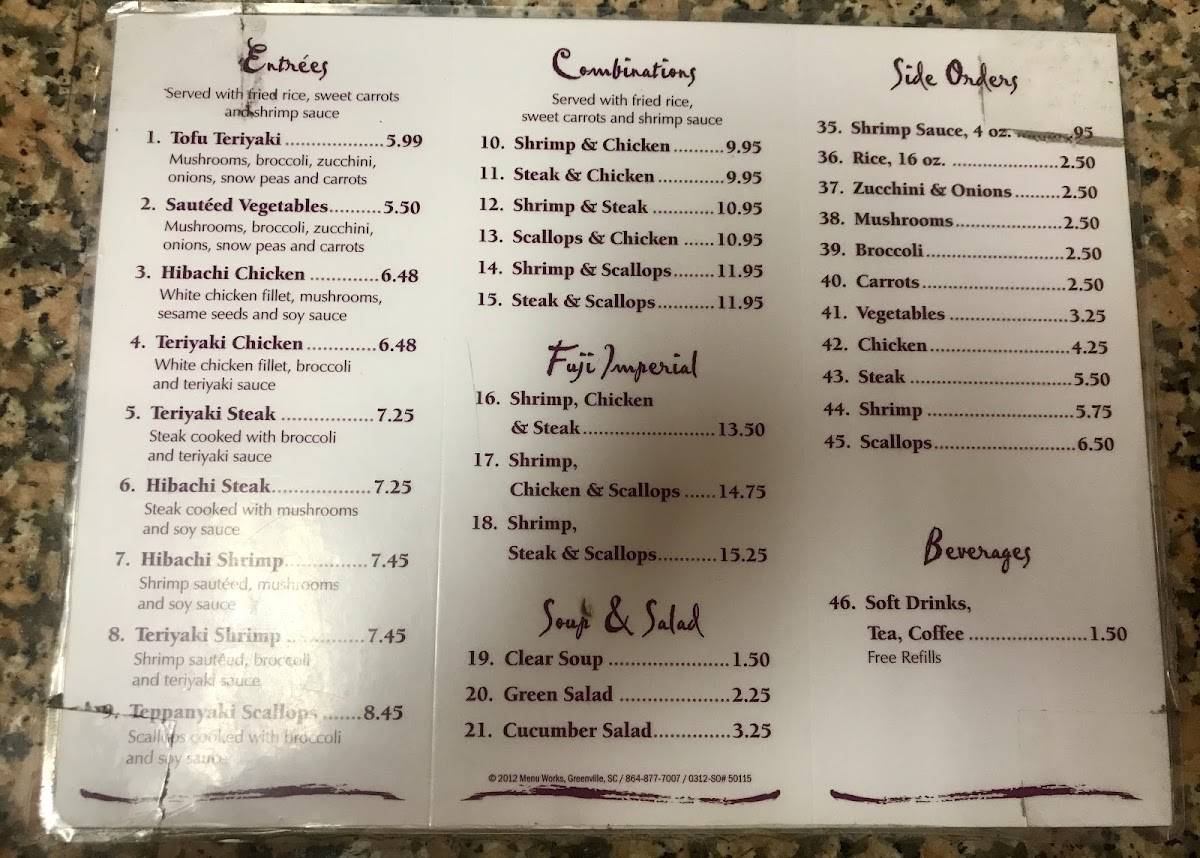 Entrées
Served with fried rice, sweet carrots
and shrimp sauce
1. Tofu Teriyaki ..................5.99
Mushrooms, broccoli, zucchini,
onions, snow peas and carrots
2. Sautéed Vegetables..........5.50
Mushrooms, broccoli, zucchini,
onions, snow peas and carrots
3. Hibachi Chicken ............6.48
White chicken fillet, mushrooms,
sesame seeds and soy sauce
4. Teriyaki Chicken ............6.48
White chicken fillet, broccoli
and teriyaki sauce
5. Teriyaki Steak ................7.25
Steak cooked with broccoli
and teriyaki sauce
6. Hibachi Steak..................7.25
Steak cooked with mushrooms
and soy sauce
7. Hibachi Shrimp...............7.45
Shrimp sautéed, mushrooms
and soy sauce
8. Teriyaki Shrimp ..............7.45
Shrimp sautéed, broccoli
and teriyaki sauce
9. Teppanyaki Scallops .......8.45
Scallops cooked with broccoli
and soy sauce
Combinations
Served with fried rice,
sweet carrots and shrimp sauce
10. Shrimp & Chicken .........9.95
11. Steak & Chicken ............9.95
12. Shrimp & Steak ...........10.95
13. Scallops & Chicken ......10.95
14. Shrimp & Scallops........11.95
15. Steak & Scallops...........11.95
Fuji Imperial
16. Shrimp, Chicken
& Steak........................13.50
17. Shrimp,
Chicken & Scallops ......14.75
18. Shrimp,
Steak & Scallops...........15.25
Soup & Salad
19. Clear Soup ......................1.50
20. Green Salad ....................2.25
21. Cucumber Salad..............3.25
© 2012 Menu Works, Greenville, SC / 864-877-7007 / 0312-SO# 50115
Side Orders
35. Shrimp Sauce, 4 oz. ..........95
36. Rice, 16 oz. ...................2.50
37. Zucchini & Onions ........2.50
38. Mushrooms...................2.50
39. Broccoli.........................2.50
40. Carrots..........................2.50
41. Vegetables .....................3.25
42. Chicken.........................4.25
43. Steak .............................5.50
44. Shrimp ..........................5.75
45. Scallops.........................6.50
Beverages
46. Soft Drinks,
Tea, Coffee .....................1.50
Free Refills